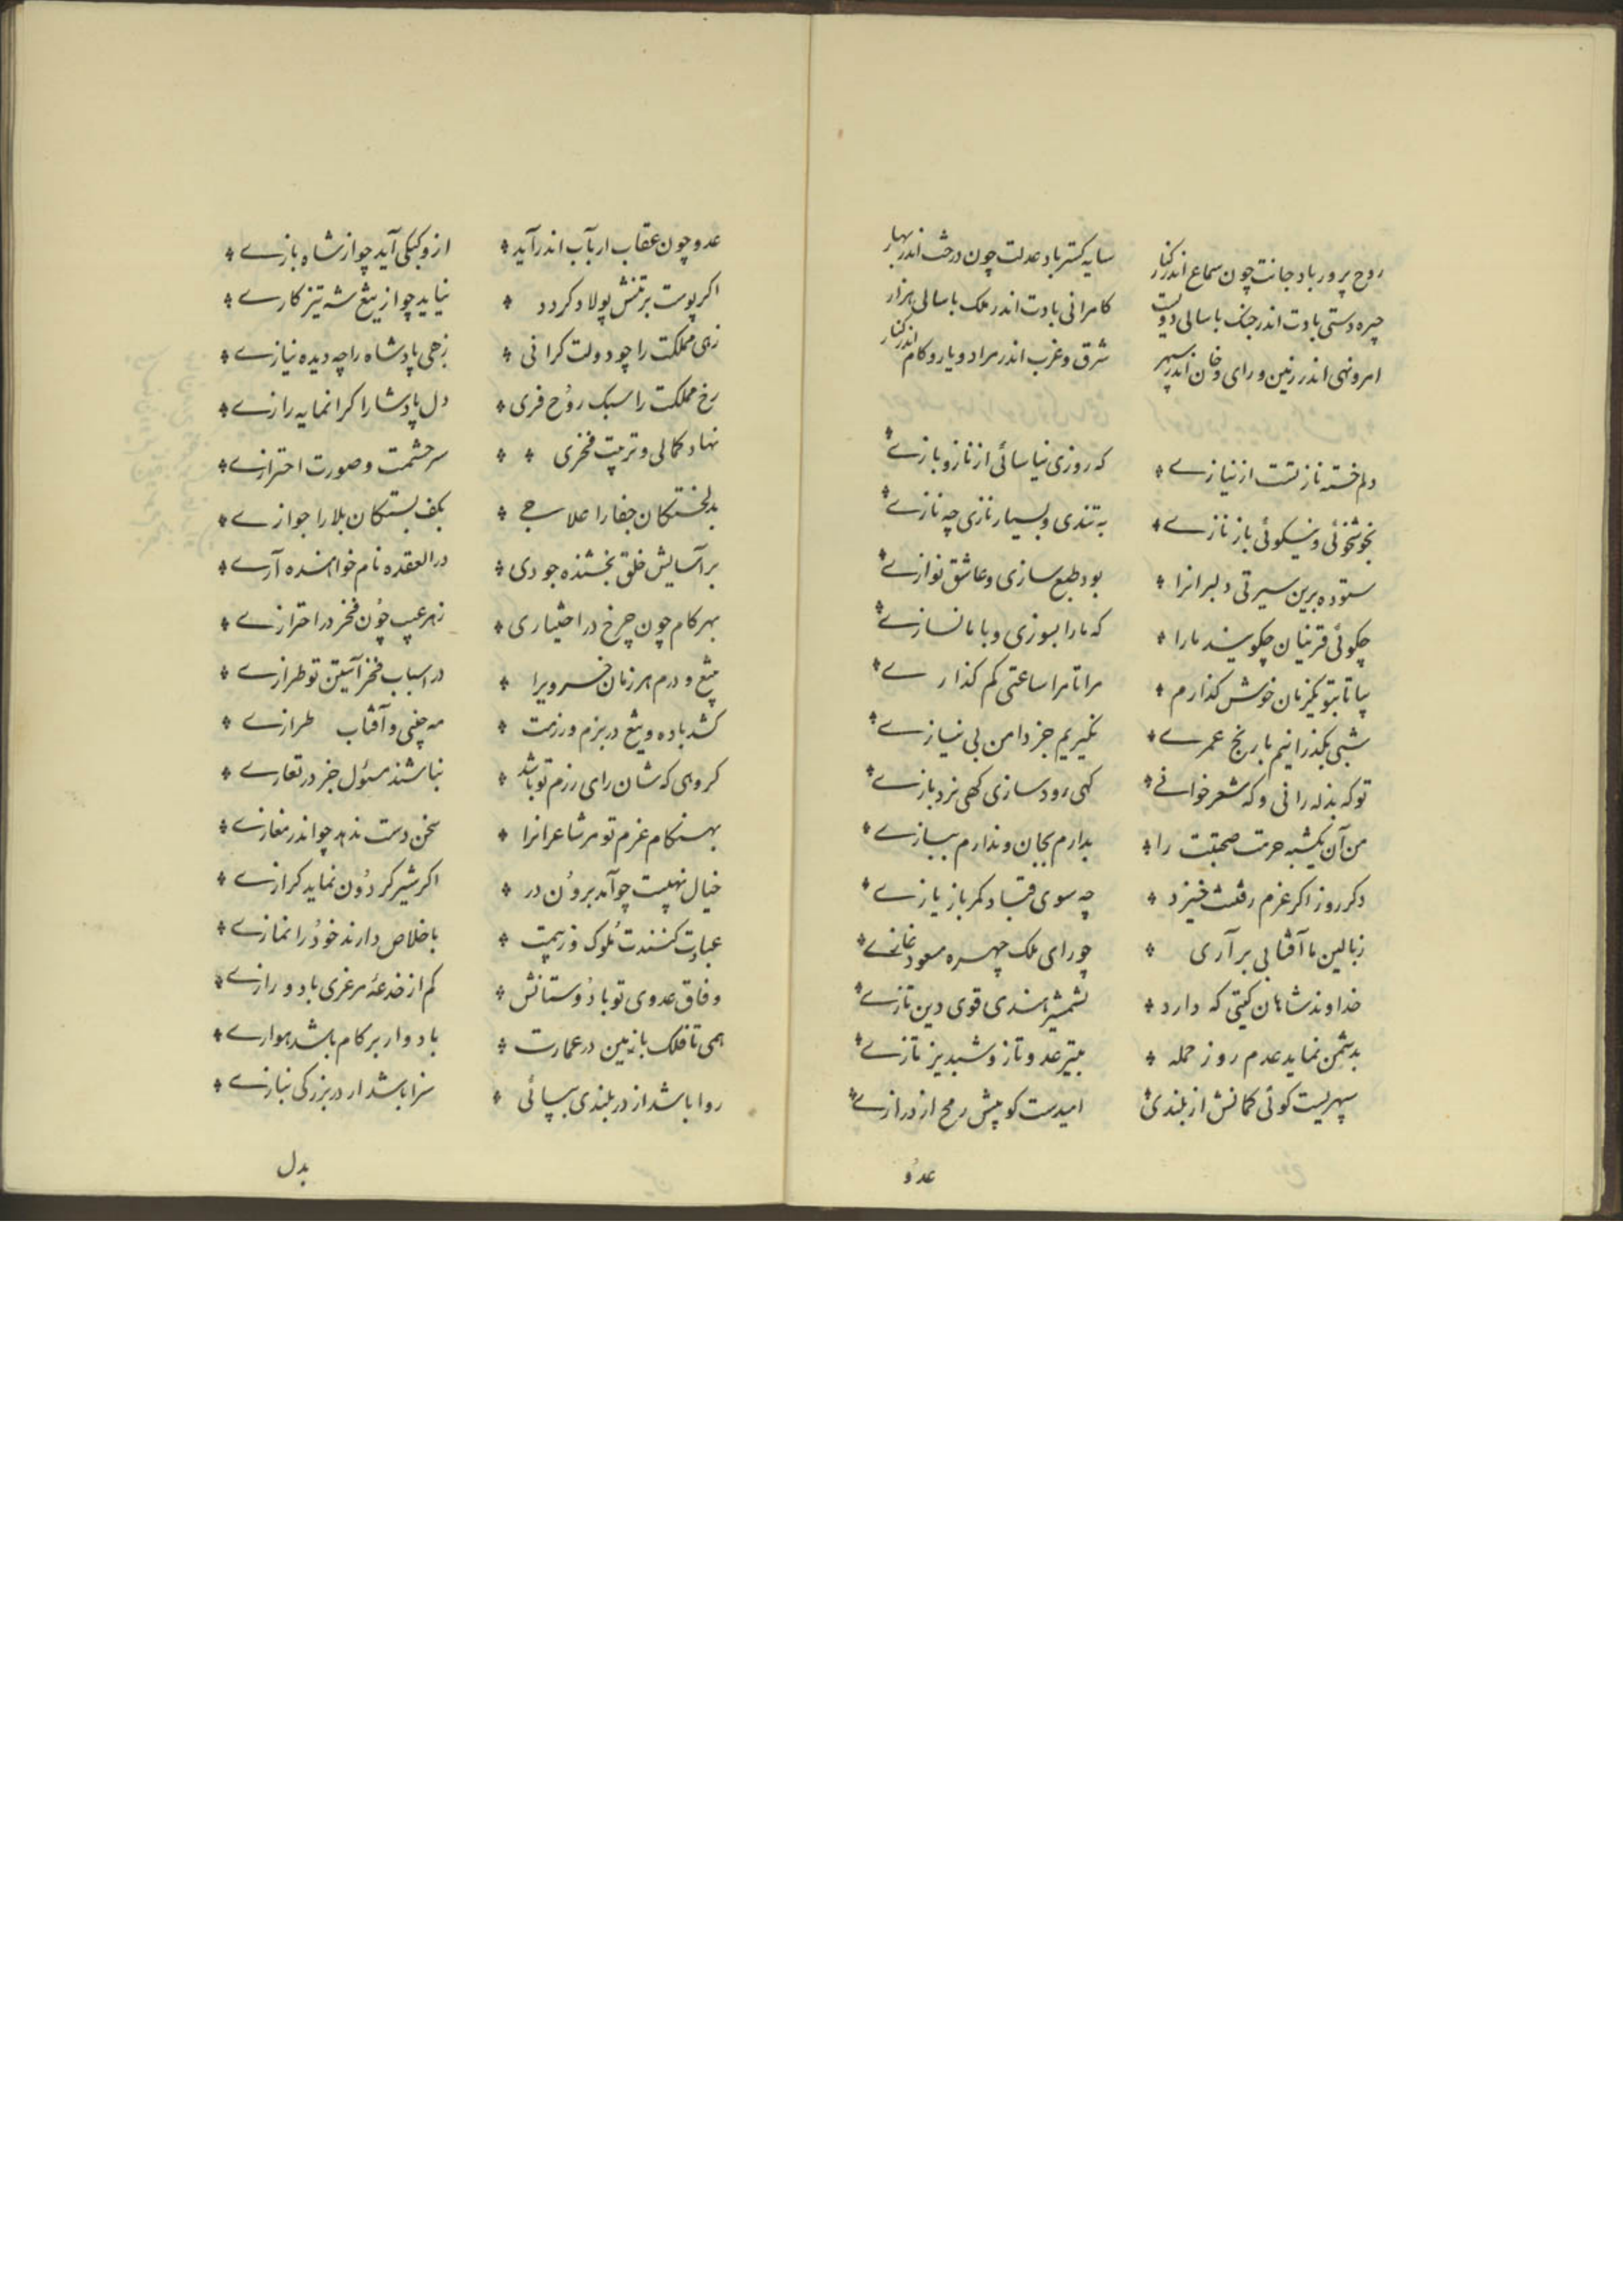 روح پرور باد جانت چون سماع اندر کنار سایه گستر باد عدلت چون درخت اندر بهار
چیره دستی بادت اندر جنگ با سالی دویست کامرانی بادت اندر ملک با سالی هزار
امر و نهی اندر زمین و رای و خان اندر سپهر شرق و غرب اندر مراد و یار و کام اندر کنار
دلم خسته ناز تست از نیازے که روزی نیاسائی از ناز و بازے
بخوشخوئی و نیکوئی باز نازے به تندی و بسیار نازی چه نازے
ستوده برین سیرتی دلبرانرا بود طبع سازی و عاشق نوازے
چکوئی قرنیان چکویند مارا که مارا بسوزی و با ما نسازے
بیا تا بتو یکزمان خوش کذارم مرا تا مرا ساعتی کم کذارے
شبی بکذرانیم با رنج عمرے نکیریم جز دامن بی نیازے
تو که بذله رانی و که شعر خوانے کهی رود سازی کهی نرد بازے
من آن یکشبه حرمت صحبتت را بدارم بجان و ندارم ببازے
دکر روز اکر عزم رفتنت خیزد چه سوی قباد کمر باز یازے
زبالین ما آفتابی برآری چو رای ملک چهره مسعود غازے
خداوند شاهان کیتی که دارد بشمشیر هندی قوی دین تازے
بدشمن نماید عدم روز حمله بتیر عدو تاز و شبدیز تازے
سپهریست کوئی کمانش از بلندی امیدست کو پیش رمح از درازے
عدو
عدو چون عقاب ار بآب اندر آید ازو کبکی آید چو از شاه بازے
اکر پوست بر تنش پولاد کردد نیاید چو از تیغ شه تیز کارے
زهی مملکت را چو دولت کرانی زهی پادشاه را چه دیده نیازے
رخ مملکت را سبک روح فری دل پادشا را کرانمایه رازے
نهاد کمالی و ترتیت فخری سر حشمت و صورت احترازے
بدلخستکان جفا را علاجے بکف بستکان بلا را جوازے
بر آسایش خلق بخشنده جودی در العقده نام خواهنده آرے
بهر کام چون چرخ در اختیاری زهر عیب چون فخر در احترازے
بتیغ و درم هر زمان خسرویرا در اسباب فخر آیتین تو طرازے
کشد باده و تیغ در بزم و رزمت مه چینی و آفتاب طرازے
کروهی که شان رای رزم تو باشد نباشند مسئول جز در تعارے
بهنکام عزم تو مر شاعرانرا سخن دست ندهد چو اندر مغازے
خیال نهیبت چو آمد برون در اکر شیر کردون نماید کرازے
عبادت کنندت ملوک و زبیمت باخلاص دارند خود را نمازے
وفاق عدوی تو با دوستانش کم از خدعۀ مرغزی با دو رازے
همی تا فلک با زمین در عمارت باد وار بر کام باشد هوارے
روا باشد از در بلندی بپائی سزا باشد ار در بزرکی نیازے
بدل